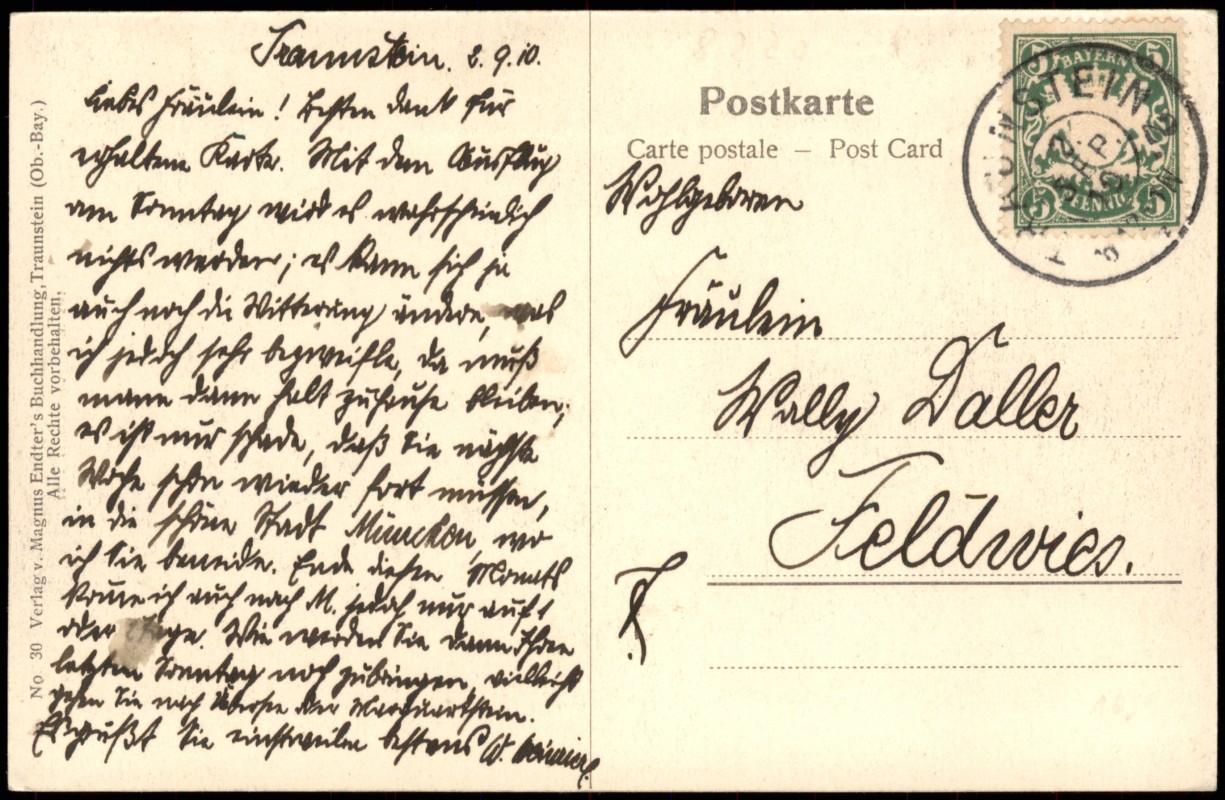 Traunstein. 2. 9. 10.
Liebes Fräulein! Besten Dank für
erhaltene Karte. Mit dem Ausflug
am Sonntag wird es wahrscheinlich
nichts werden; es kann sich ja
auch noch die Witterung ändern, was
ich jedoch sehr bezweifle, da muß
mann dann halt zuhause bleiben;
es ist nur schade, daß Sie nächste
Woche schon wieder fort müssen,
in die schöne Stadt München, wo
ich Sie beneide. Ende dieses Monats
komme ich auch nach M. jedoch nur auf 1
oder Tage. Wie werden Sie dann Ihren
letzten Sonntag noch zubringen, vielleicht
gehen Sie nach Übersee oder Marquartstein.
Es grüßt Sie einstweilen bestens
No 30 Verlag v. Magnus Endter's Buchhandlung, Traunstein (Ob.-Bay.)
Alle Rechte vorbehalten.
Postkarte
Carte postale – Post Card
Wohlgeboren
Fräulein
Wally Daller
Feldwies.
BAYERN
5 5
5 5
TRAUNSTEIN
2 SEP.